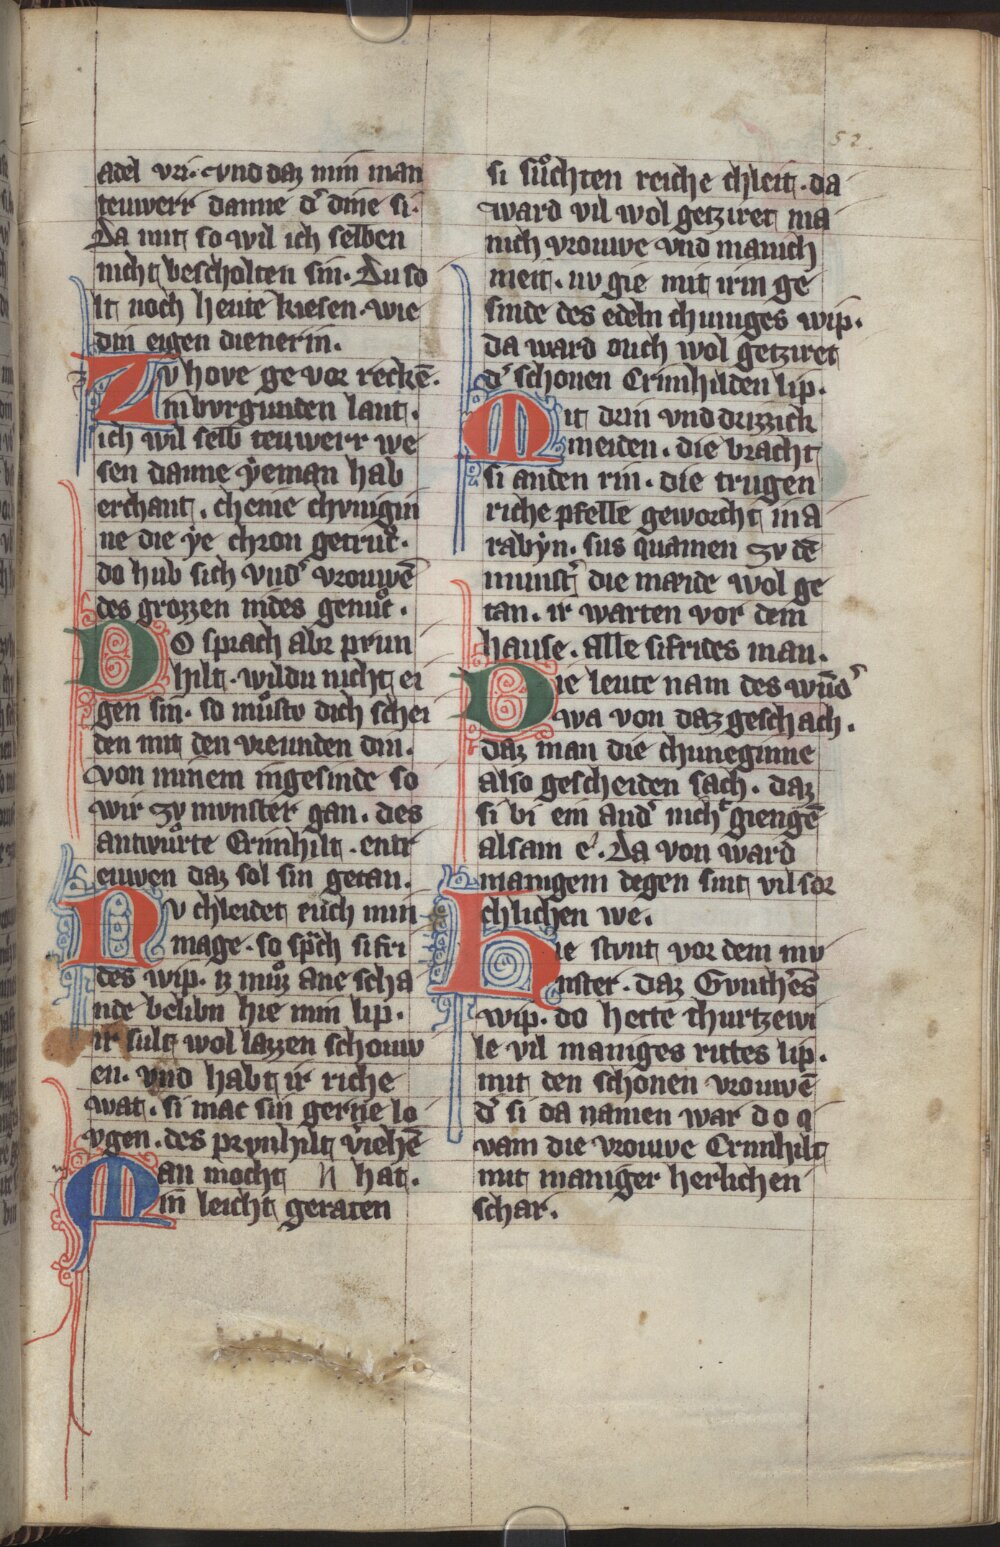 52.
adel vri. vnd daz min man
teuwerr danne d' dine si.
Da mit so wil ich selben
nicht bescholten sin. Du so
lt noch heute kiesen. wie
din eigen dienerin.
Zv hove ge vor reckē.
in bvrgunden lant.
ich wil selb teuwerr we
sen danne ẏeman hab
erchant. cheine chvnigin
ne die ẏe chron getruͦc.
do hub sich vnd' vrouwē
des grozzen nides genuͦc.
Do sprach abr prun
hilt. wildu nicht ei
gen sin. so muͦstv dich schei
den mit den vreunden din.
von minem ingesinde so
wir zv mvnster gan. des
antwuͦrte Crimhilt. entr
euwen daz sol sin getan.
Nv chleidet euch min
mage. so sp̄ch sifri
des wip. iz muͦz ane scha
nde belibn hie min lip.
ir sult wol lazzen schouw
en. vnd habt ir riche
wat. si mac sin gerne lo
vgen. des prvnhilt v'iehē
Man mocht n hat.
in leicht geraten
si suͦchten reiche chleit. da
ward vil wol getziret ma
nich vrouwe vnd manich
meit. nv gie mit irin ge
sinde des edeln chuniges wip.
da ward ouch wol getziret
d' schonen Crimhilden lip.
Mit drin vnd drizzick
meiden. die bracht
si anden rin. die trugen
riche pfelle geworcht in a
rabẏn. sus quamen zv dē
munst' die maide wol ge
tan. ir warten vor dem
hause. alle sifrites man.
Die leute nam des wūd'
wa von daz geschach.
daz man die chuneginne
also gescheiden sach. daz
si bi ein and' nicht giengē
alsam e'. Da von ward
manigem degen sint vil sor
chlichen we.
Hie stvnt vor dem mv
nster. daz Gvnthers
wip. do hette churtzewi
le vil maniges rittes lip.
mit den schonen vrouwē
d' si da namen war do q
vam die vrouwe Crimhilt
mit maniger herlichen
schar.